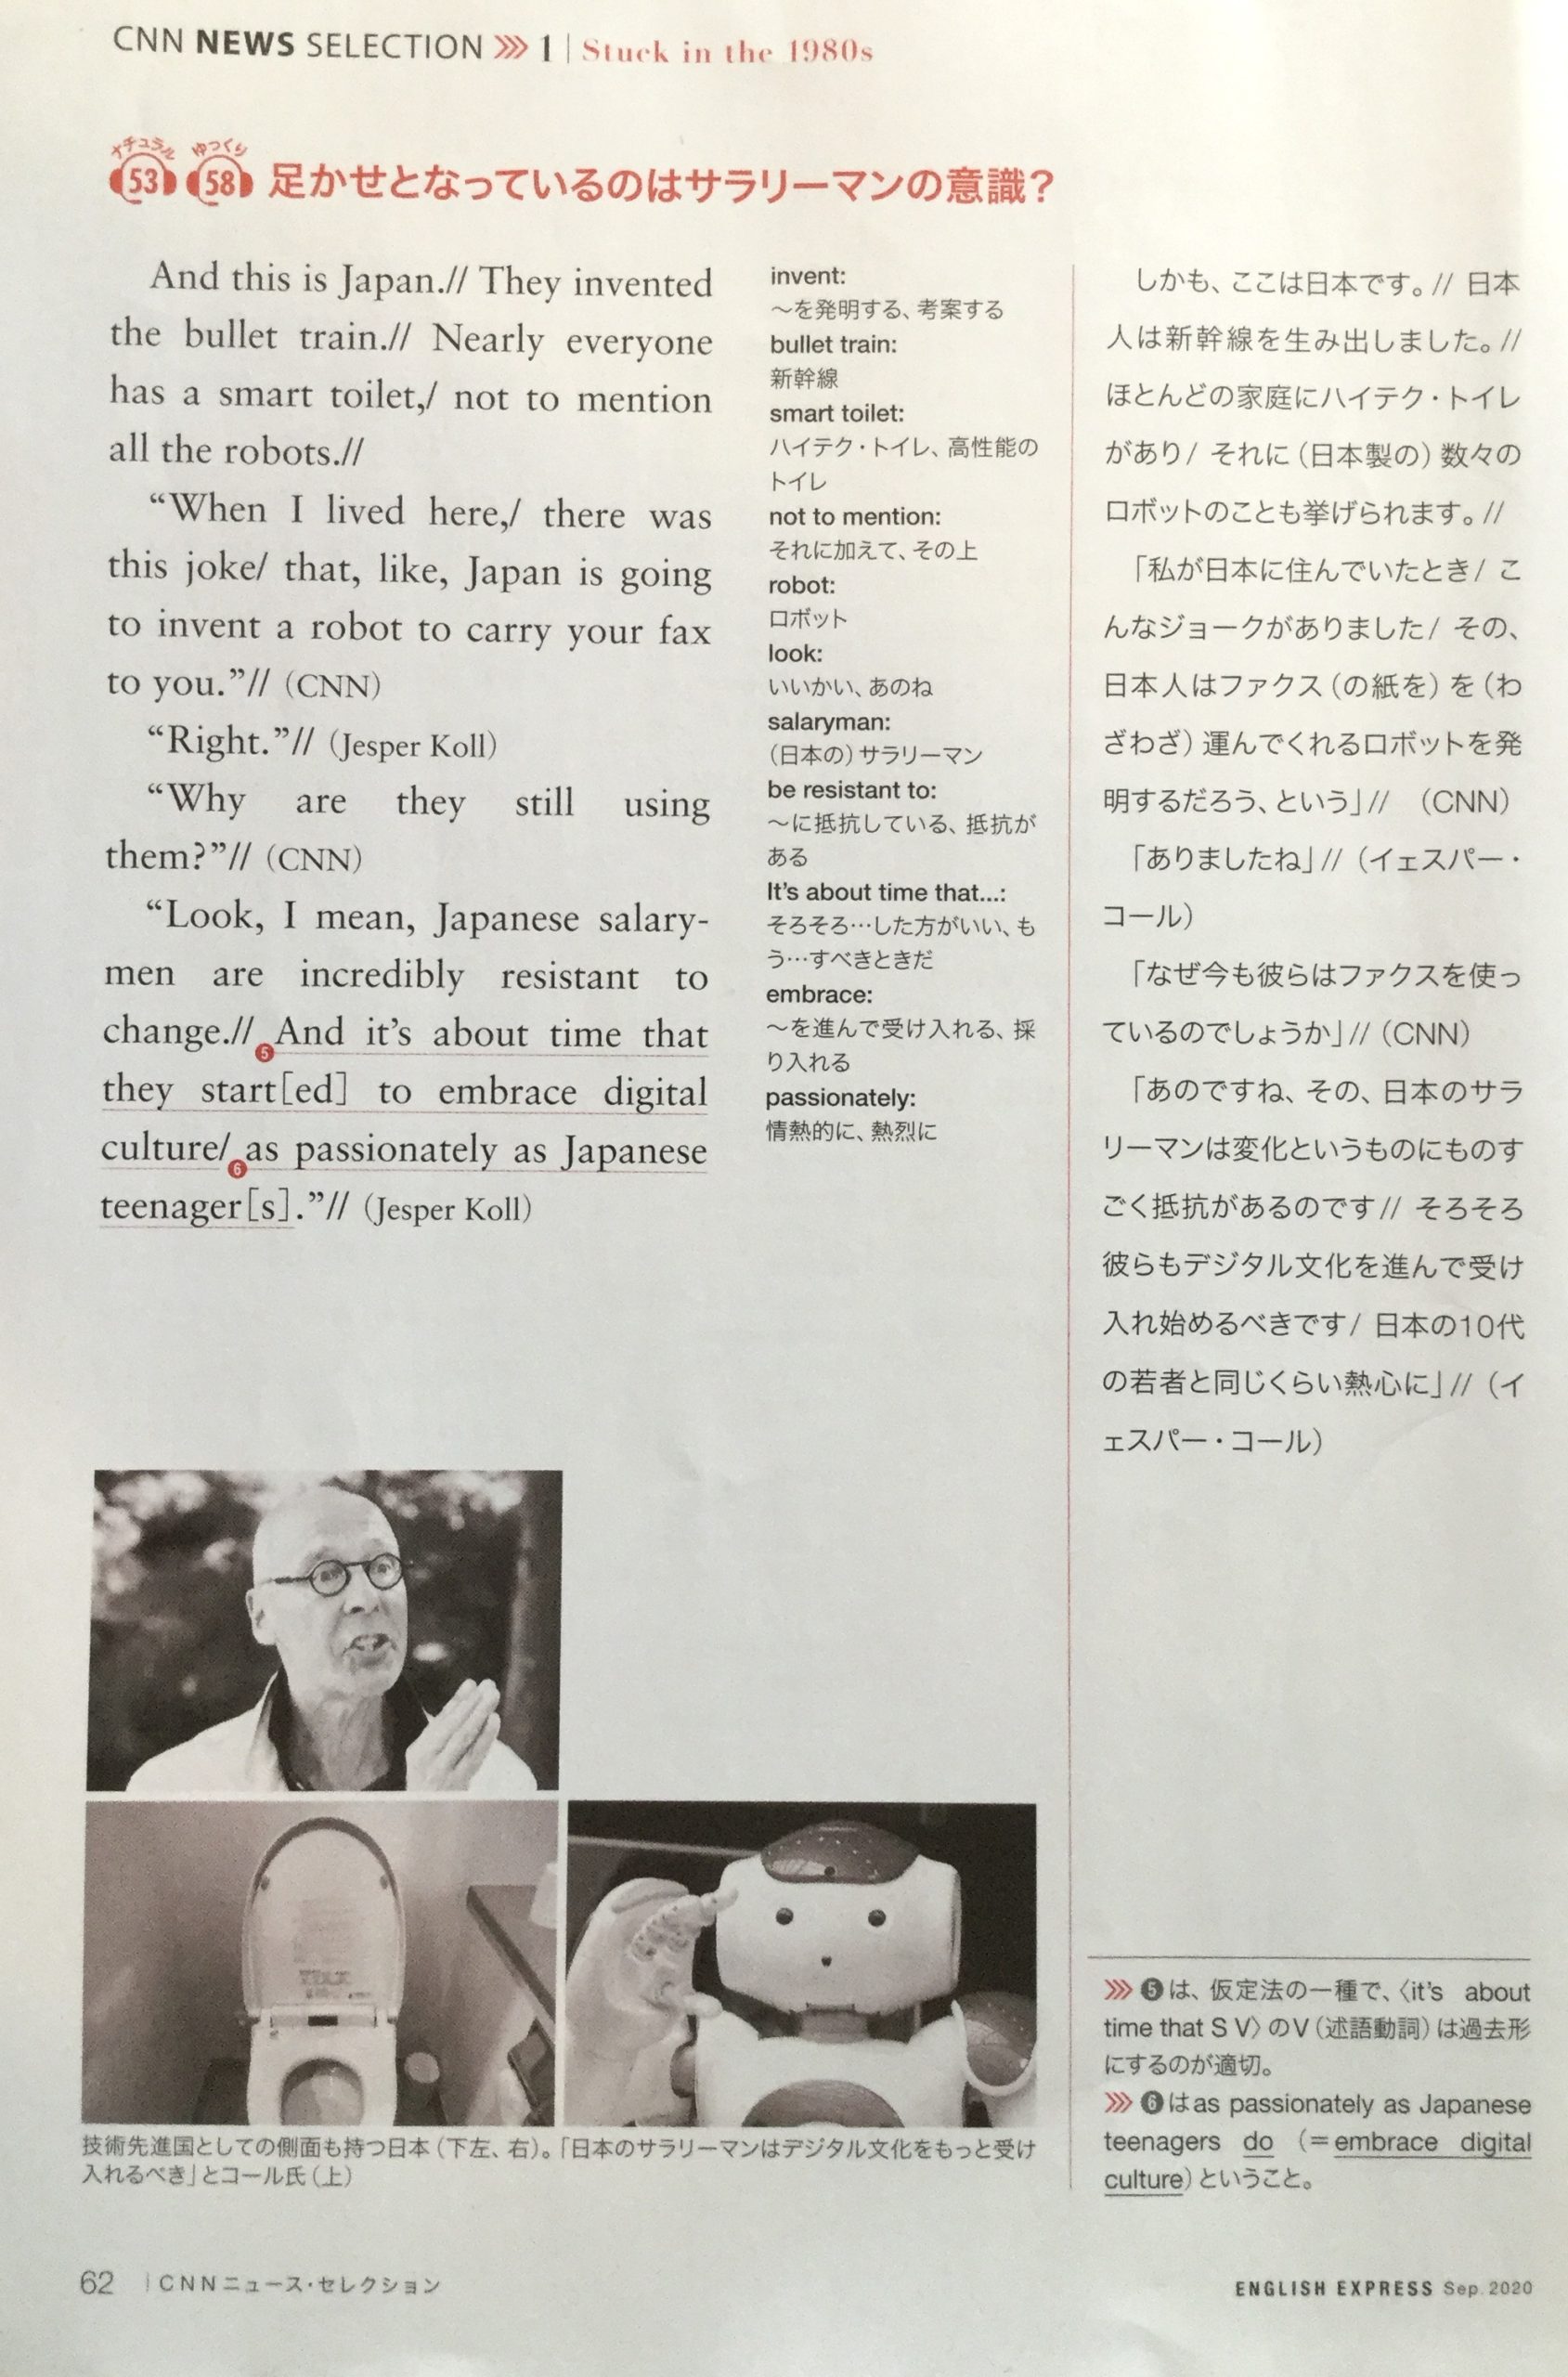 CNN NEWS SELECTION >>> 1 | Stuck in the 1980s
ナチュラル ゆっくり
53 58 足かせとなっているのはサラリーマンの意識？
And this is Japan.// They invented
the bullet train.// Nearly everyone
has a smart toilet,/ not to mention
all the robots.//
“When I lived here,/ there was
this joke/ that, like, Japan is going
to invent a robot to carry your fax
to you.”// (CNN)
“Right.”// (Jesper Koll)
“Why are they still using
them?”// (CNN)
“Look, I mean, Japanese salary-
men are incredibly resistant to
change.// ❺And it’s about time that
they start[ed] to embrace digital
culture/ ❻as passionately as Japanese
teenager[s].”// (Jesper Koll)
invent:
〜を発明する、考案する
bullet train:
新幹線
smart toilet:
ハイテク・トイレ、高性能の
トイレ
not to mention:
それに加えて、その上
robot:
ロボット
look:
いいかい、あのね
salaryman:
（日本の）サラリーマン
be resistant to:
〜に抵抗している、抵抗が
ある
It’s about time that...:
そろそろ…した方がいい、も
う…すべきときだ
embrace:
〜を進んで受け入れる、採
り入れる
passionately:
情熱的に、熱烈に
しかも、ここは日本です。// 日本
人は新幹線を生み出しました。//
ほとんどの家庭にハイテク・トイレ
があり/ それに（日本製の）数々の
ロボットのことも挙げられます。//
「私が日本に住んでいたとき/ こ
んなジョークがありました/ その、
日本人はファクス（の紙を）を（わ
ざわざ）運んでくれるロボットを発
明するだろう、という」// （CNN）
「ありましたね」//（イェスパー・
コール）
「なぜ今も彼らはファクスを使っ
ているのでしょうか」//（CNN）
「あのですね、その、日本のサラ
リーマンは変化というものにものす
ごく抵抗があるのです// そろそろ
彼らもデジタル文化を進んで受け
入れ始めるべきです/ 日本の10代
の若者と同じくらい熱心に」//（イ
ェスパー・コール）
技術先進国としての側面も持つ日本（下左、右）。「日本のサラリーマンはデジタル文化をもっと受け
入れるべき」とコール氏（上）
>>> ❺は、仮定法の一種で、〈it’s about
time that S V〉のV（述語動詞）は過去形
にするのが適切。
>>> ❻はas passionately as Japanese
teenagers do （＝embrace digital
culture）ということ。
62 | CNNニュース・セレクション
ENGLISH EXPRESS Sep. 2020